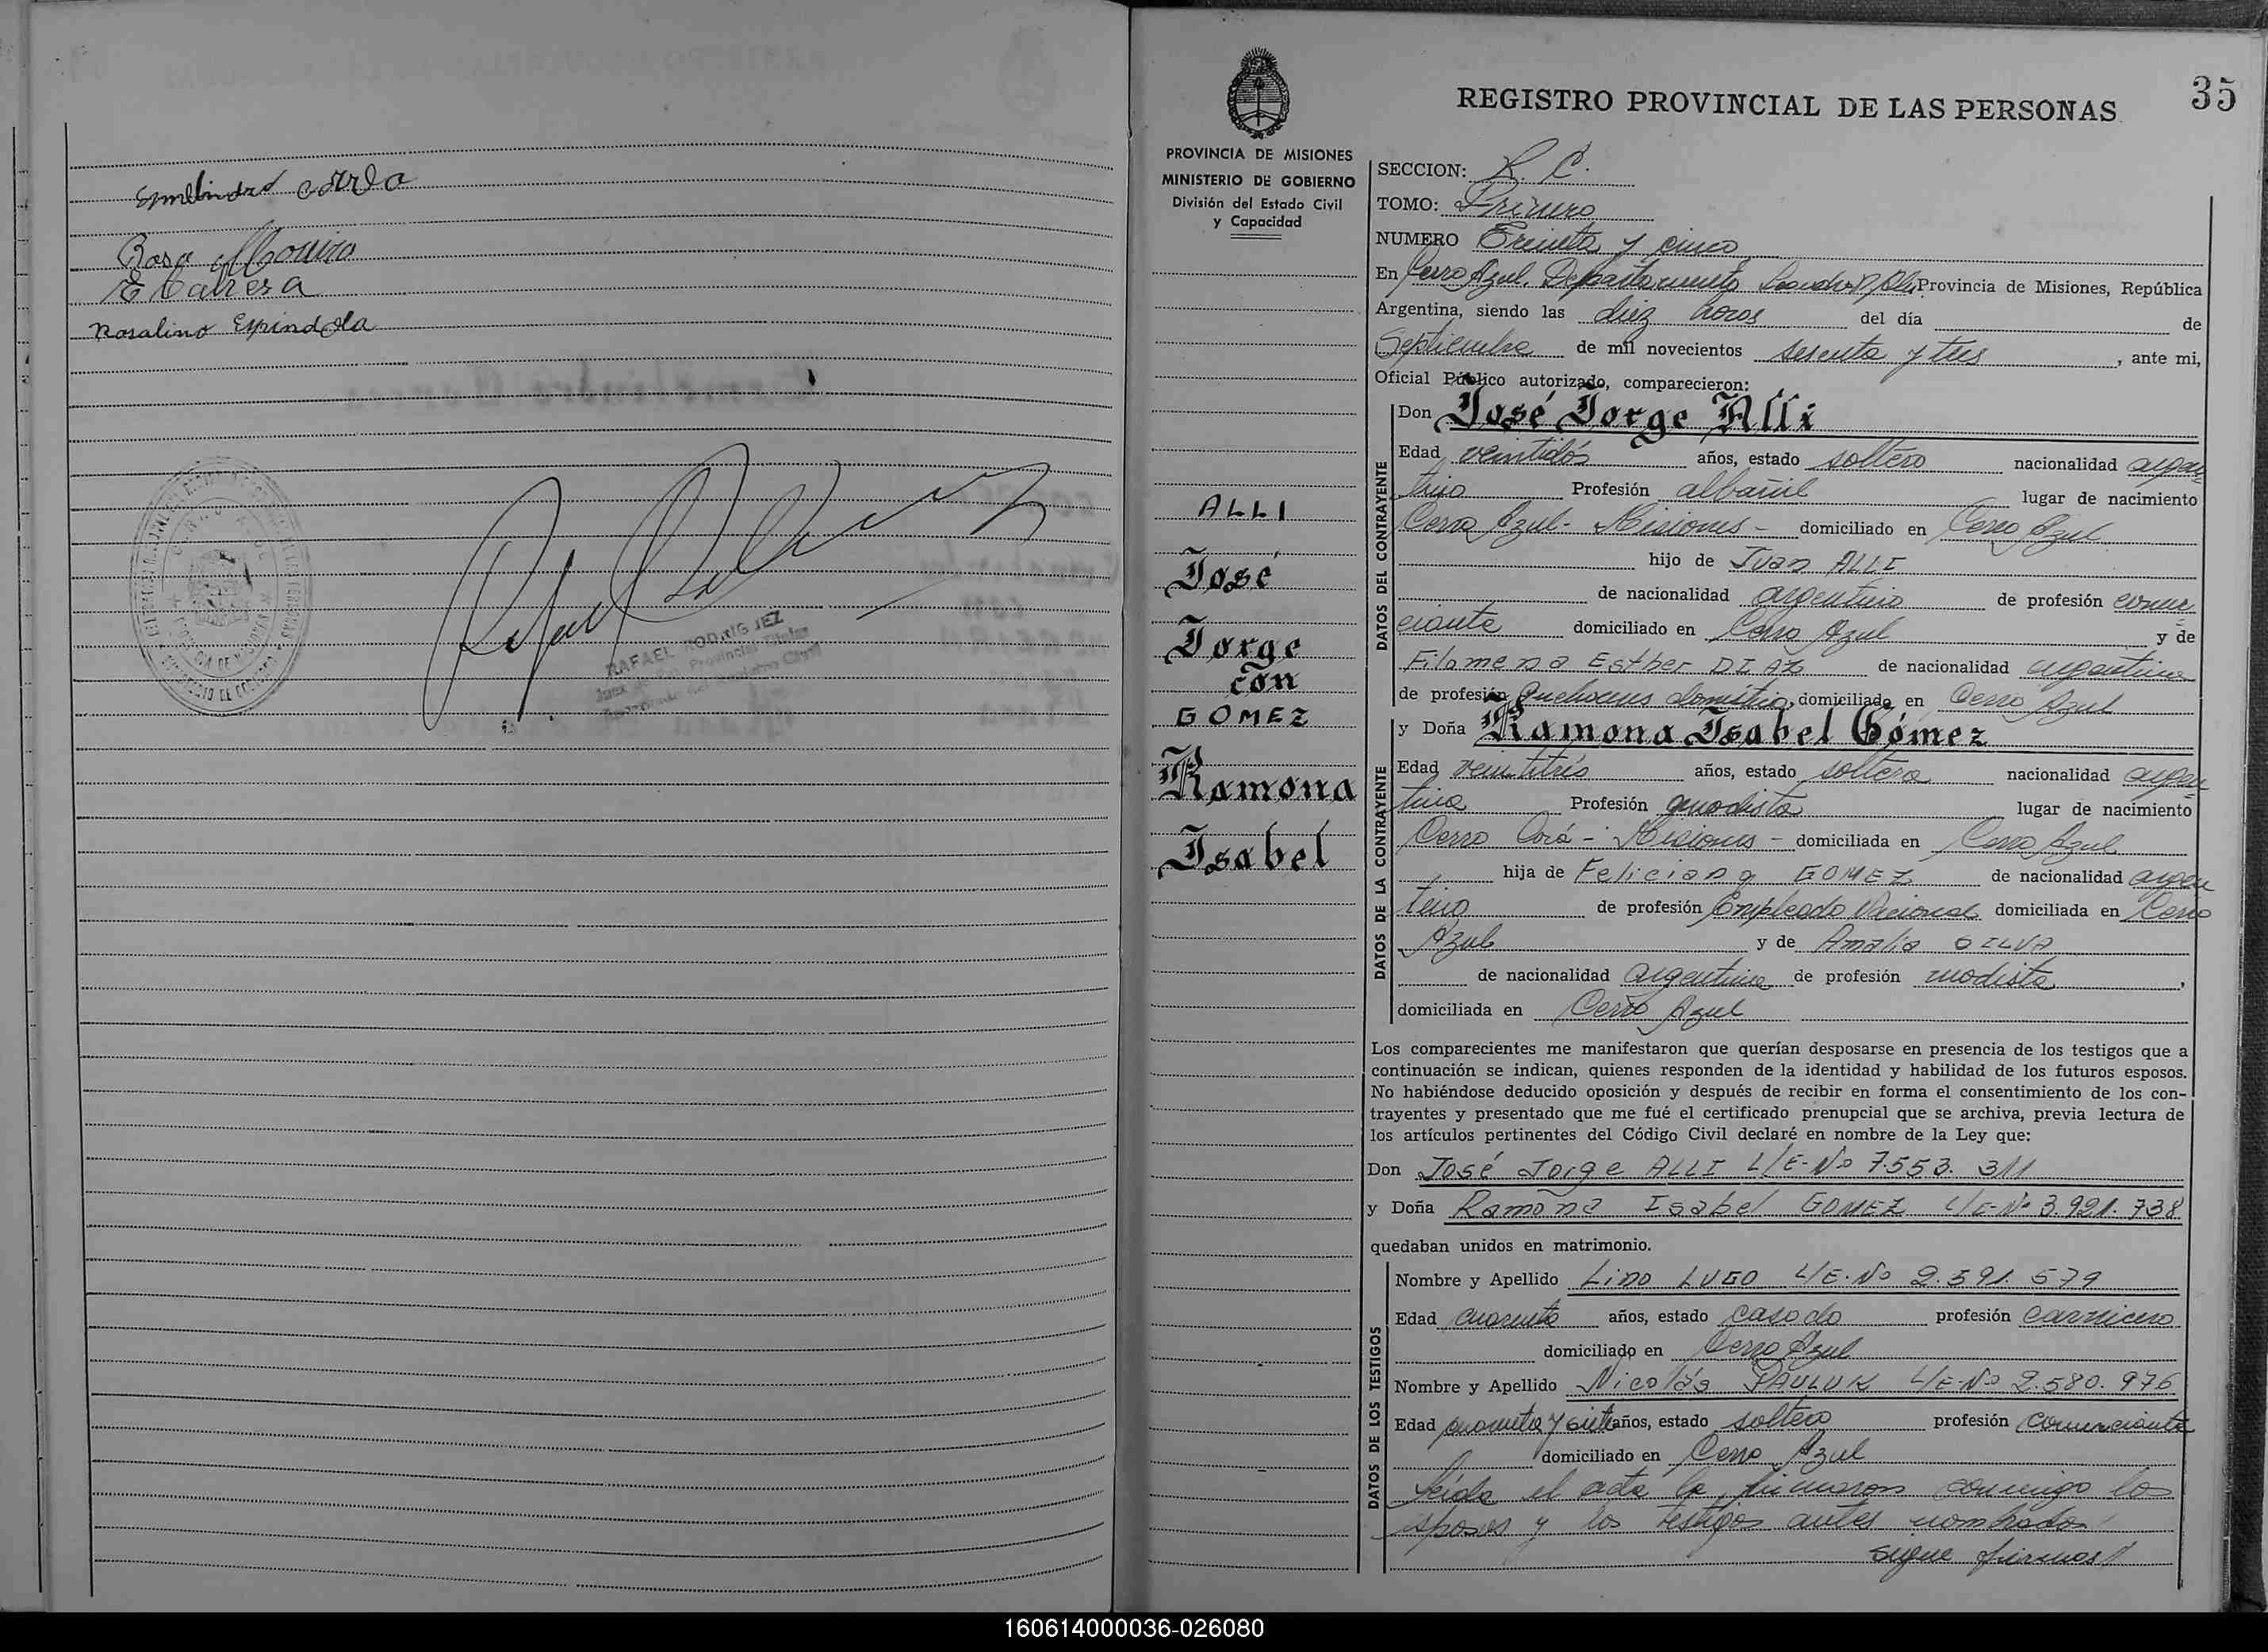 Rosa
E Cabrera
Rosalino Espindola
RAFAEL RODRIGUEZ
35
REGISTRO PROVINCIAL DE LAS PERSONAS
PROVINCIA DE MISIONES
MINISTERIO DE GOBIERNO
División del Estado Civil
y Capacidad
ALLI
José
Jorge
con
GOMEZ
Ramona
Isabel
SECCION: R. C.
TOMO: Primero
NUMERO Treinta y cinco
En Cerro Azul, Departamento Leandro N. Alem Provincia de Misiones, República
Argentina, siendo las diez horas del día de
Septiembre de mil novecientos sesenta y tres, ante mi,
Oficial Público autorizado, comparecieron:
DATOS DEL CONTRAYENTE
Don José Jorge Alli
Edad veintidós años, estado soltero nacionalidad argen
tino Profesión albañil lugar de nacimiento
Cerro Azul - Misiones - domiciliado en Cerro Azul
hijo de Juan ALLI
de nacionalidad argentino de profesión comer
ciante domiciliado en Cerro Azul y de
Filomena Esther DIAZ de nacionalidad argentina
de profesión quehaceres domésticos, domiciliada en Cerro Azul
DATOS DE LA CONTRAYENTE
y Doña Ramona Isabel Gómez
Edad veintitrés años, estado soltera nacionalidad argen
tina Profesión modista lugar de nacimiento
Cerro Corá - Misiones - domiciliada en Cerro Azul
hija de Feliciano GOMEZ de nacionalidad argen
tino de profesión Empleado Nacional domiciliada en Cerro
Azul y de Amalia SILVA
de nacionalidad argentina de profesión modista,
domiciliada en Cerro Azul
Los comparecientes me manifestaron que querían desposarse en presencia de los testigos que a
continuación se indican, quienes responden de la identidad y habilidad de los futuros esposos.
No habiéndose deducido oposición y después de recibir en forma el consentimiento de los con-
trayentes y presentado que me fué el certificado prenupcial que se archiva, previa lectura de
los artículos pertinentes del Código Civil declaré en nombre de la Ley que:
Don José Jorge ALLI L/E-Nº 7.553.311
y Doña Ramona Isabel GOMEZ L/E-Nº 3.921.738
quedaban unidos en matrimonio.
DATOS DE LOS TESTIGOS
Nombre y Apellido Lino LUGO L/E.Nº 2.591.579
Edad cuarenta años, estado casado profesión carnicero
domiciliado en Cerro Azul
Nombre y Apellido Nicolás PAULUK L/E-Nº 2.580.976
Edad cuarenta y siete años, estado soltero profesión comerciante
domiciliado en Cerro Azul
Leída el acta la firmaron conmigo los
esposos y los testigos antes nombrados
sigue firmas//
160614000036-026080